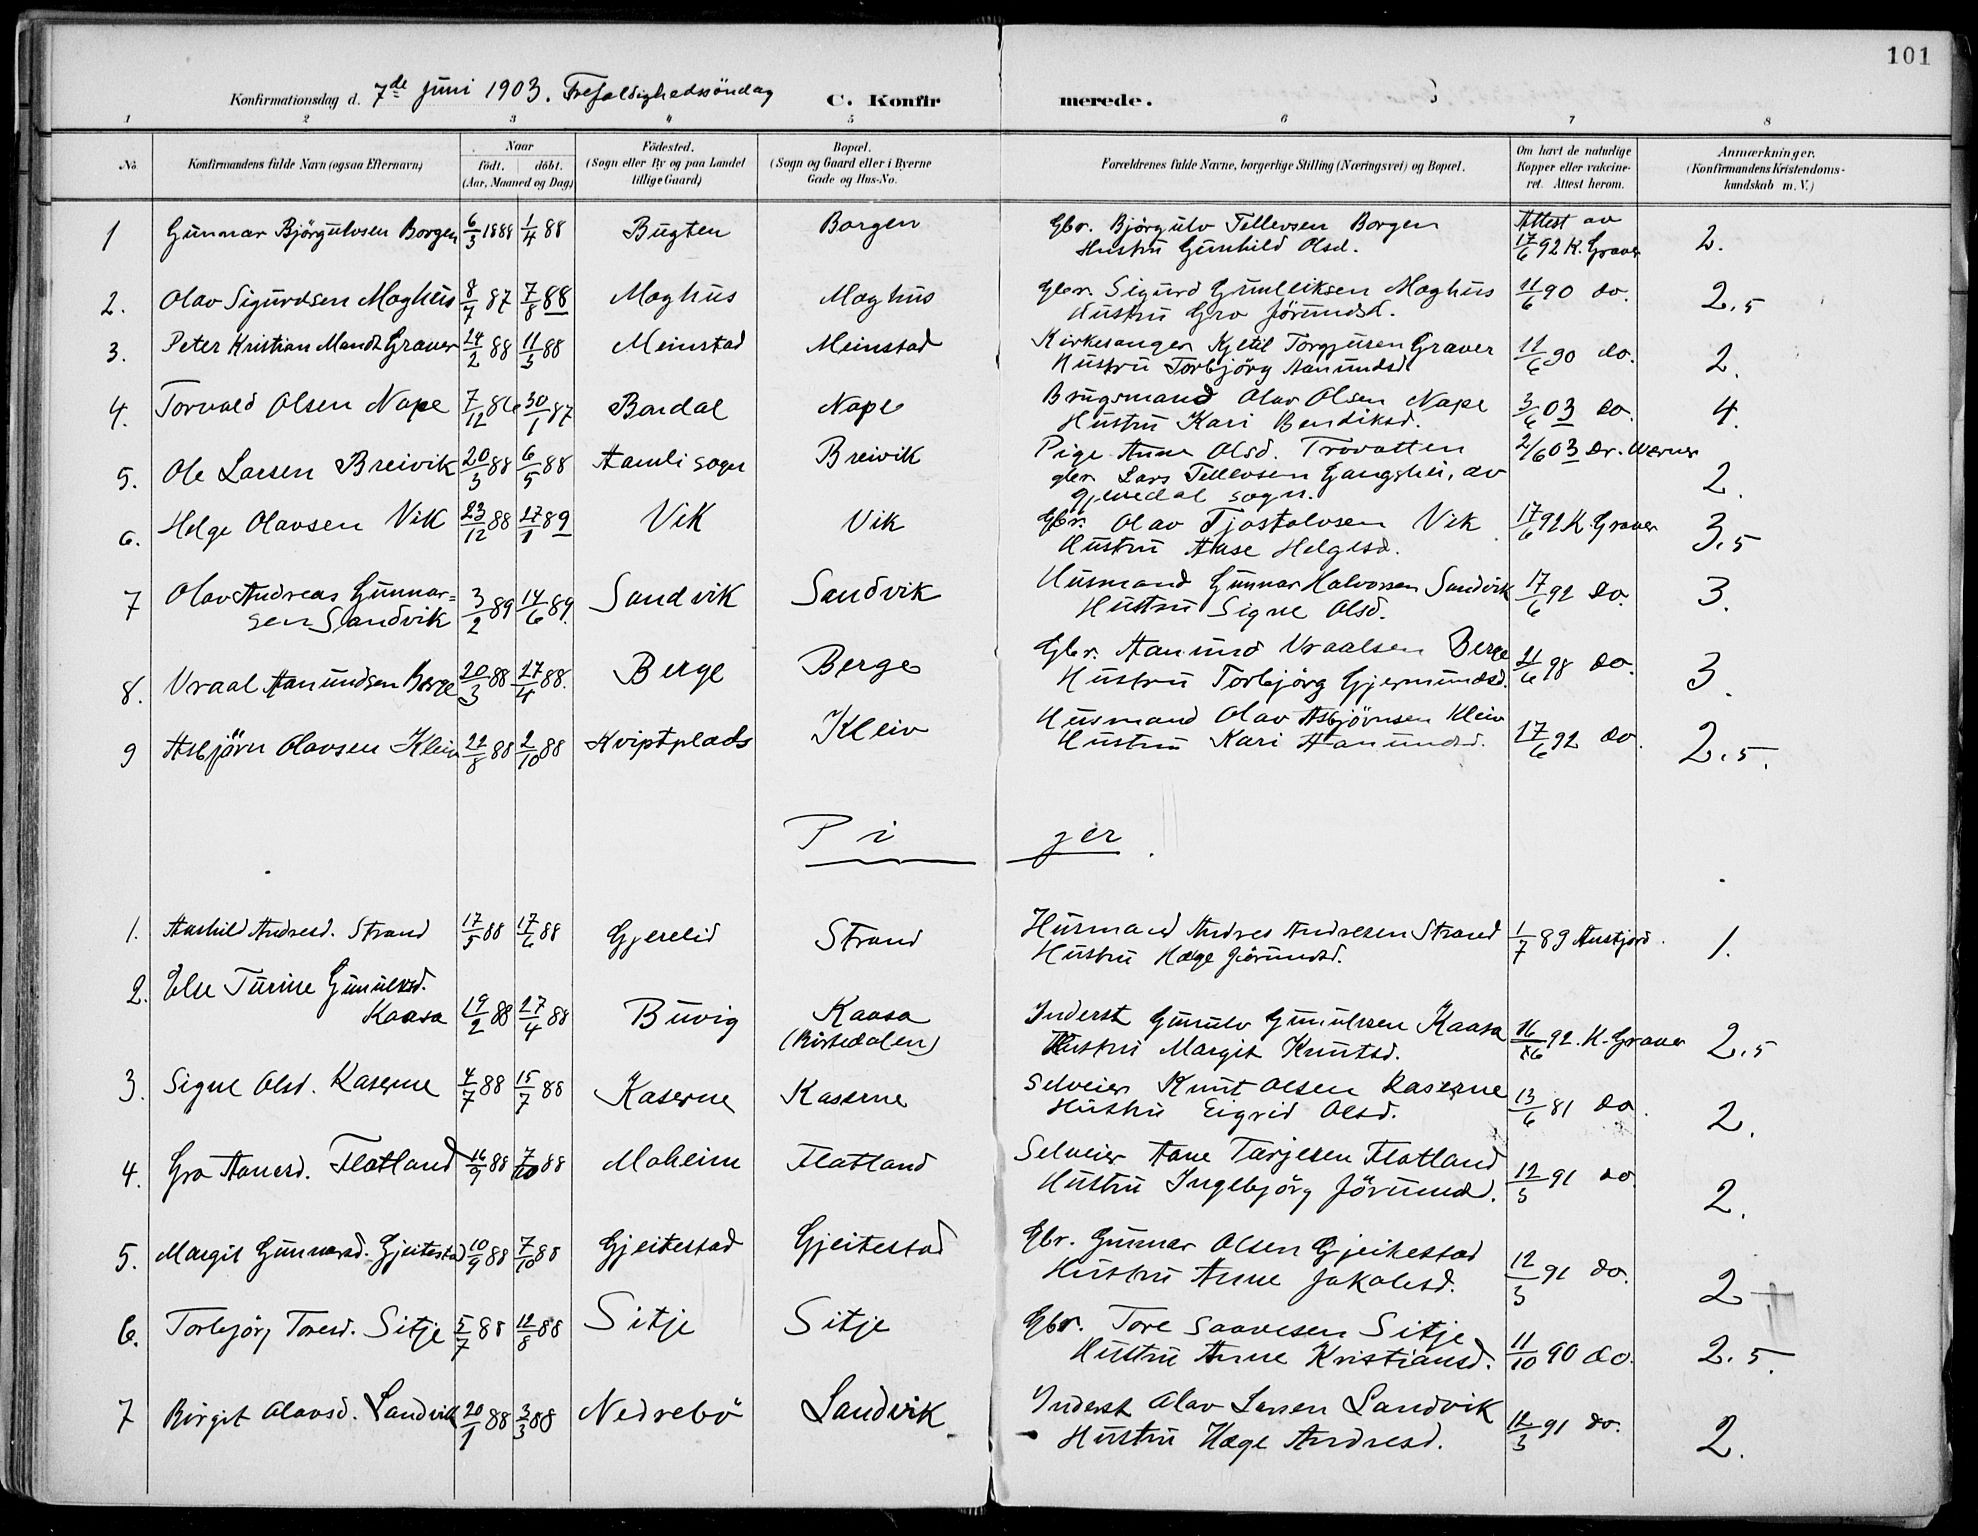 101
Konfirmationsdag d. 7de juni 1903. Trefoldighedssöndag C. Konfir merede.
1 2 3 4 5 6 7 8
No. Konfirmandens fulde Navn (ogsaa Efternavn) Naar födt. döbt. (Aar, Maaned og Dag.) Födested. (Sogn eller By og paa Landet tillige Gaard) Bopæl. (Sogn og Gaard eller i Byerne Gade og Hus-No. Forældrenes fulde Navne, borgerlige Stilling (Næringsvei) og Bopæl. Om havt de naturlige Kopper eller vakcineret. Attest herom. Anmærkninger. (Konfirmandens Kristendomskundskab m. V.)
1 Gunnar Björgulvsen Borgen 6/3 1888 1/4 88 Bugten Borgen Gbr. Bjørgulv Tellevsen Borgen Attest av
Hustru Gunhild Olsd. 17/6 92 K. Graver 2.
2. Olav Sigurdsen Moghus 8/7 87 7/8 88 Moghus Moghus Gbr. Sigurd Gunleiksen Moghus 11/6 90 do. 2.5
Hustru Gro Jörundsd.
3. Peter Kristian Mandt Graver 24/2 88 11/3 88 Meinstad Meinstad Kirkesanger Kjetil Torgjusen Graver 11/6 90 do. 2.
Hustru Torbjörg Aanundsd.
4. Torvald Olsen Nape 7/12 86 30/1 87 Bordal Nape Brugsmand Olav Olsen Nape 3/6 03 do. 4.
Hustru Kari Bendiksd.
5. Ole Larsen Breivik 20/3 88 6/5 88 Aamli sogn Breivik Pige Anne Olsd. Trovatten 2/6 03 Dr. Werner 2.
Lars Tellevsen Gangshei, av
Gjevedal sogn.
6. Helge Olavsen Vik 23/12 88 27/1 89 Vik Vik Gbr. Olav Tjostolvsen Vik 17/6 92 K. Graver 3.5
Hustru Aase Helgesd.
7 Olav Andreas Gunnar=
sen Sandvik 3/2 89 14/6 89. Sandvik Sandvik Husmand Gunnar Halvorsen Sandvik 17/6 92 do. 3.
Hustru Signe Olsd.
8. Vraal Aanundsen Berge 20/3 88 27/4 88. Berge Berge Gbr. Aanund Vraalsen Berge 21/6 98 do. 3.
Hustru Torbjörg Gjermundsd.
9 Asbjörn Olavsen Kleiv 22/8 88 2/10 88 Kviptplads Kleiv Husmand Olav Asbjörnsen Kleiv 17/6 92 do. 2.5.
Hustru Kari Aanundsd.
Pi ger.
1. Aashild Andresd. Strand 17/5 88 17/6 88 Gjerelid Strand Husmand Andres Andresen Strand 1/7 89 Austjord. 1.
Hustru Hæge Jörundsd.
2. Else Turine Gunulvsd.
Kaasa 19/2 88 27/4 88 Buvig Kaasa Inderst Gunulv Gunulvsen Kaasa 16/6 92. K. Graver 2.5
(Kirkedalen) Hustru Margit Knutsd.
3. Signe Olsd. Kaserne 4/7 88 15/7 88 Kaserne Kaserne Selveier Knut Olsen Kaserne 13/6 81 do. 2.
Hustru Sigrid Olsd.
4. Gro Aanesd. Flatland 16/9 88 7/10 88 Moheim Flatland Selveier Aane Tarjesen Flatland 12/3 91 do. 2.
Hustru Ingebjörg Jörundsd.
5. Margit Gunnarsd. Gjeitestad 10/9 88 7/10 88 Gjeitestad Gjeitestad Gbr. Gunnar Olsen Gjeitestad 12/3 91 do. 2
Hustru Anne Jakobsd.
6. Torbjörg Toresd. Sitje 5/7 88 12/8 88 Sitje Sitje Gbr. Tore Saavesen Sitje 11/10 90 do. 2.5.
Hustru Anne Kristiansd.
7 Birgit Olavsd. Sandvik 20/1 88 3/3 88 Nedrebö Sandvik Inderst Olav Larsen Sandvik 12/3 91 do. 2.
Hustru Hæge Andresd.